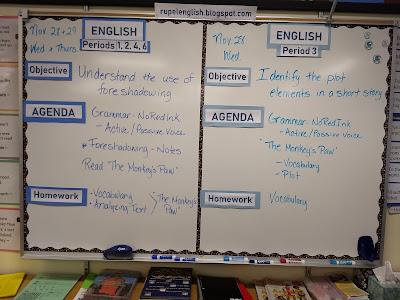 rupelenglish.blogspot.com
Nov 28+29
Wed + Thurs
ENGLISH
Periods 1, 2, 4, 6
Objective
Understand the use of
foreshadowing
AGENDA
Grammar - NoRedInk
- Active/Passive Voice
* Foreshadowing - Notes
Read "The Monkey's Paw"
Homework
- Vocabulary
- Analyzing Text
"The Monkey's
Paw"
Nov 28
Wed.
ENGLISH
Period 3
Objective
Identify the plot
elements in a short story
AGENDA
Grammar - NoRedInk
- Active/Passive Voice
"The Monkey's Paw"
- Vocabulary
- Plot
Homework
Vocabulary